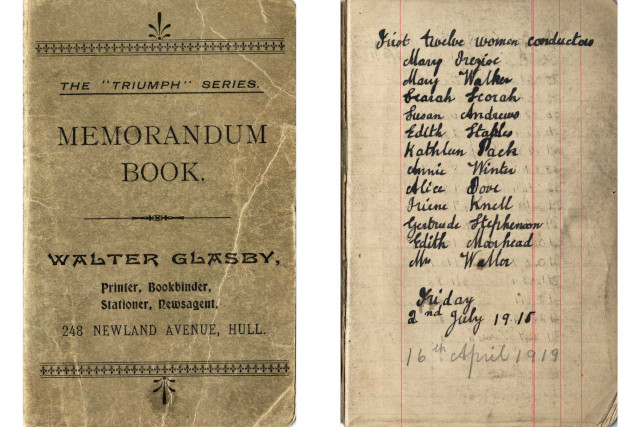 THE "TRIUMPH" SERIES.
MEMORANDUM
BOOK.
WALTER GLASBY,
Printer, Bookbinder,
Stationer, Newsagent.
248 NEWLAND AVENUE, HULL.
First twelve women conductors
Mary
Mary Walker
Searah Scorah
Susan Andrews
Edith Staples
Kathlen Pack
Annie Winter
Alice Dove
Iriene Knell
Gertrude Stephenson
Edith Moorhead
Waller
Friday
2nd July 1915
16th April 1919